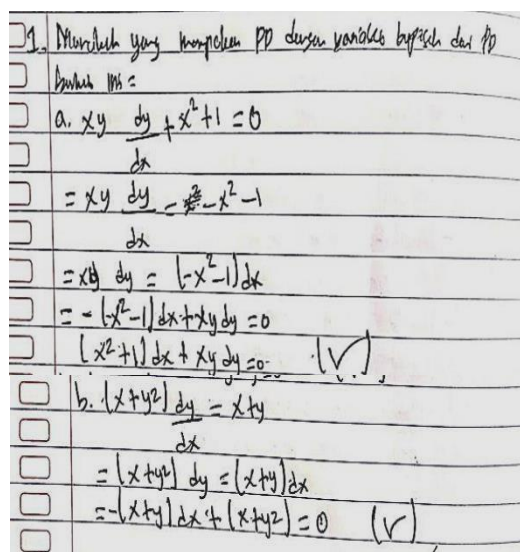 1. Manakah yang merupakan PD dengan variabel terpisah dari PD
berikut ini =
a. xy dy/dx + x² + 1 = 0
= xy dy/dx = -x² - 1
= xy dy = (-x² - 1) dx
= -(-x² - 1) dx + xy dy = 0
(x² + 1) dx + xy dy = 0 (V)
b. (x + y²) dy/dx = x + y
= (x + y²) dy = (x + y) dx
= -(x + y) dx + (x + y²) = 0 (V)